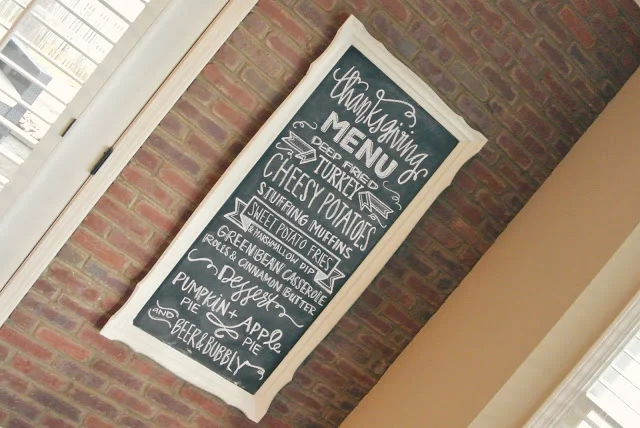 thanksgiving
MENU
DEEP FRIED
TURKEY
CHEESY POTATOES
STUFFING MUFFINS
SWEET POTATO FRIES
& MARSHMALLOW DIP
GREEN BEAN CASSEROLE
ROLLS & CINNAMON BUTTER
Dessert
PUMPKIN + Apple
PIE PIE
AND BEER & BUBBLY